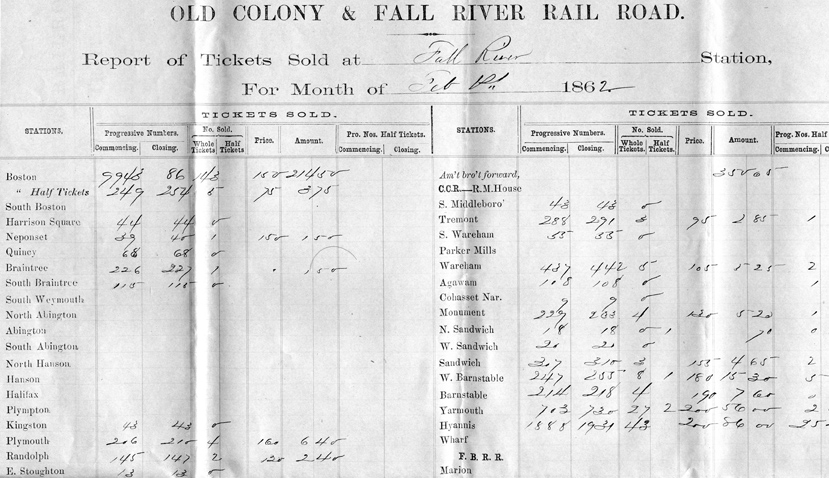 OLD COLONY & FALL RIVER RAIL ROAD.
Report of Tickets Sold at Fall River Station,
For Month of Feb 1862
STATIONS. TICKETS SOLD.
Progressive Numbers. No. Sold. Price. Amount. Pro. Nos. Half Tickets.
Commencing. Closing. Whole Tickets Half Tickets Commencing. Closing.
Boston 9943 86 143 150 21450
" Half Tickets 249 254 5 75 375
South Boston
Harrison Square 44 44 0
Neponset 39 40 1 150 150
Quincy 68 68 0
Braintree 226 227 1 " 150
South Braintree 115 115 0
South Weymouth
North Abington
Abington
South Abington
North Hanson
Hanson
Halifax
Plympton
Kingston 43 43 0
Plymouth 206 210 4 160 640
Randolph 145 147 2 120 240
E. Stoughton 13 13 0
STATIONS. TICKETS SOLD.
Progressive Numbers. No. Sold. Price. Amount. Prog. Nos. Half
Commencing. Closing. Whole Tickets Half Tickets. Commencing. C
Am't bro't forward, 35005
C.C.R.—R.M.House
S. Middleboro' 43 43 0
Tremont 288 291 3 95 285 1
S. Wareham 55 55 0
Parker Mills
Wareham 437 442 5 105 525 2
Agawam 108 108 0 1
Cohasset Nar. 9 9 0
Monument 229 233 4 130 520 1
N. Sandwich 18 18 0 1 70 0
W. Sandwich 20 20 0
Sandwich 307 310 3 155 465 2
W. Barnstable 247 255 8 1 180 1530 5
Barnstable 214 218 4 190 760 0
Yarmouth 703 730 27 2 200 5600 2
Hyannis 1888 1931 43 200 8600 25
Wharf
F. B. R. R.
Marion